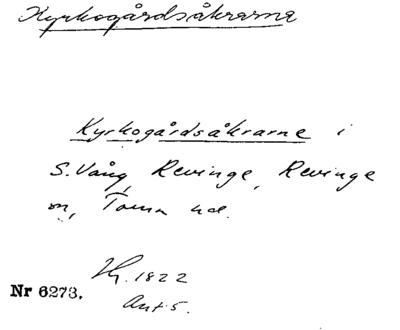 Kyrkogårdsåkrarna
Kyrkogårdsåkrarne i
S. Vång, Revinge, Revinge
sn, Torna hd.
Hy. 1822
Nr 6273. Akt 5.